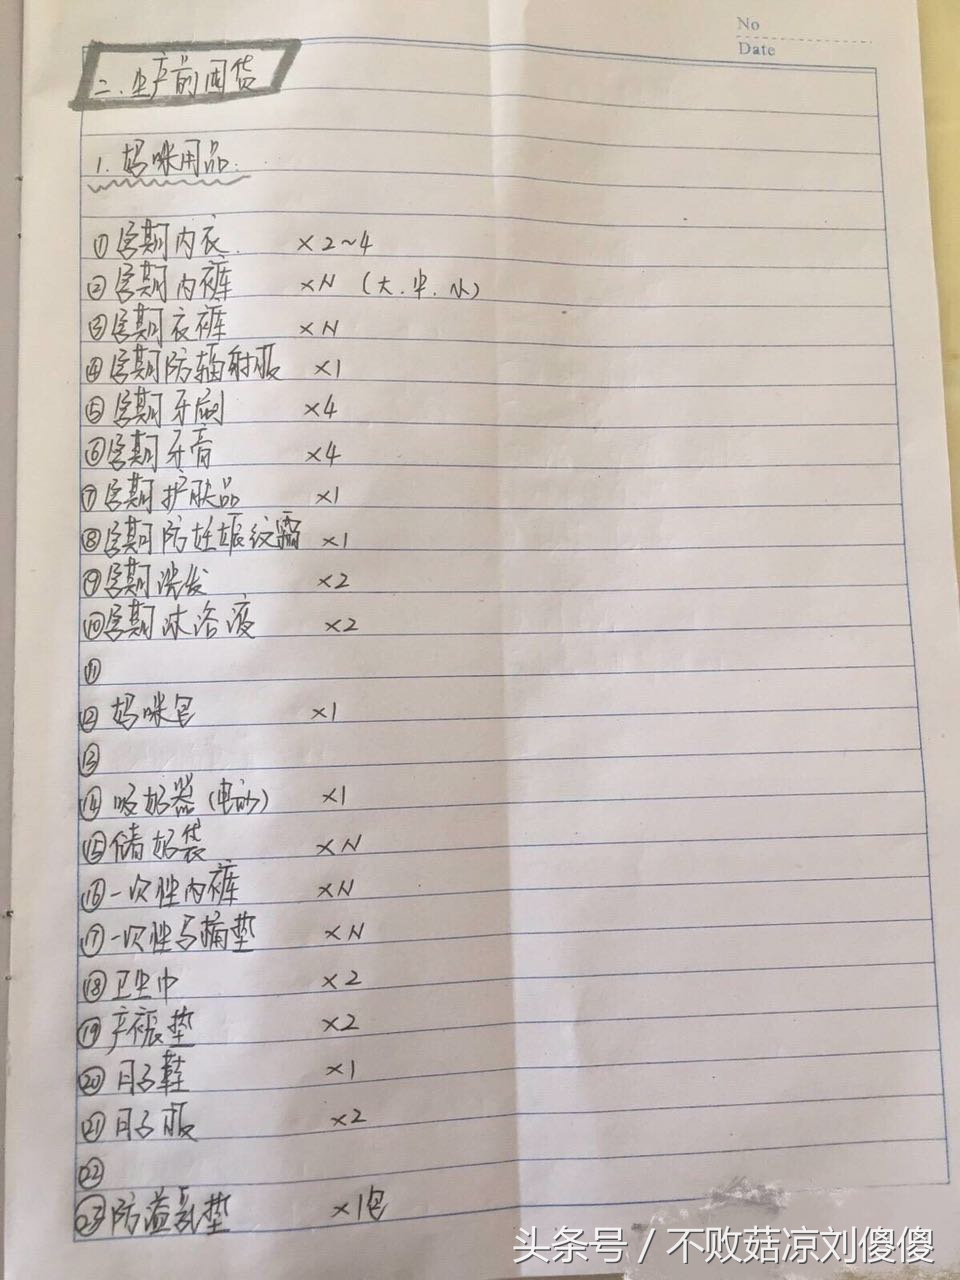 No
Date
二.生产前囤货
1.妈咪用品:
①孕期内衣 ×2~4
②孕期内裤 ×N (大.中.小)
③孕期衣裤 ×N
④孕期防辐射服 ×1
⑤孕期牙刷 ×4
⑥孕期牙膏 ×4
⑦孕期护肤品 ×1
⑧孕期防妊娠纹霜 ×1
⑨孕期洗发 ×2
⑩孕期沐浴液 ×2
⑪
⑫妈咪包 ×1
⑬
⑭吸奶器(电动) ×1
⑮储奶袋 ×N
⑯一次性内裤 ×N
⑰一次性马桶垫 ×N
⑱卫生巾 ×2
⑲产褥垫 ×2
⑳月子鞋 ×1
㉑月子服 ×2
㉒
㉓防溢乳垫 ×1包
头条号/不败菇凉刘傻傻